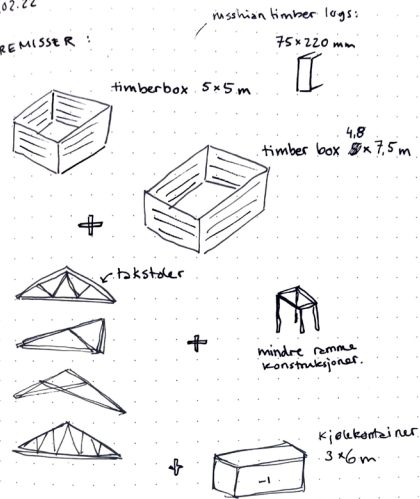 .02.22
russhian timber logs:
REMISSER :
75 x 220 mm
timberbox 5x5 m
4,8
timber box x 7,5 m
+
takstoler
+
mindre ramme
konstruksjoner.
+
kjølekontainer
3 x 6 m
-1